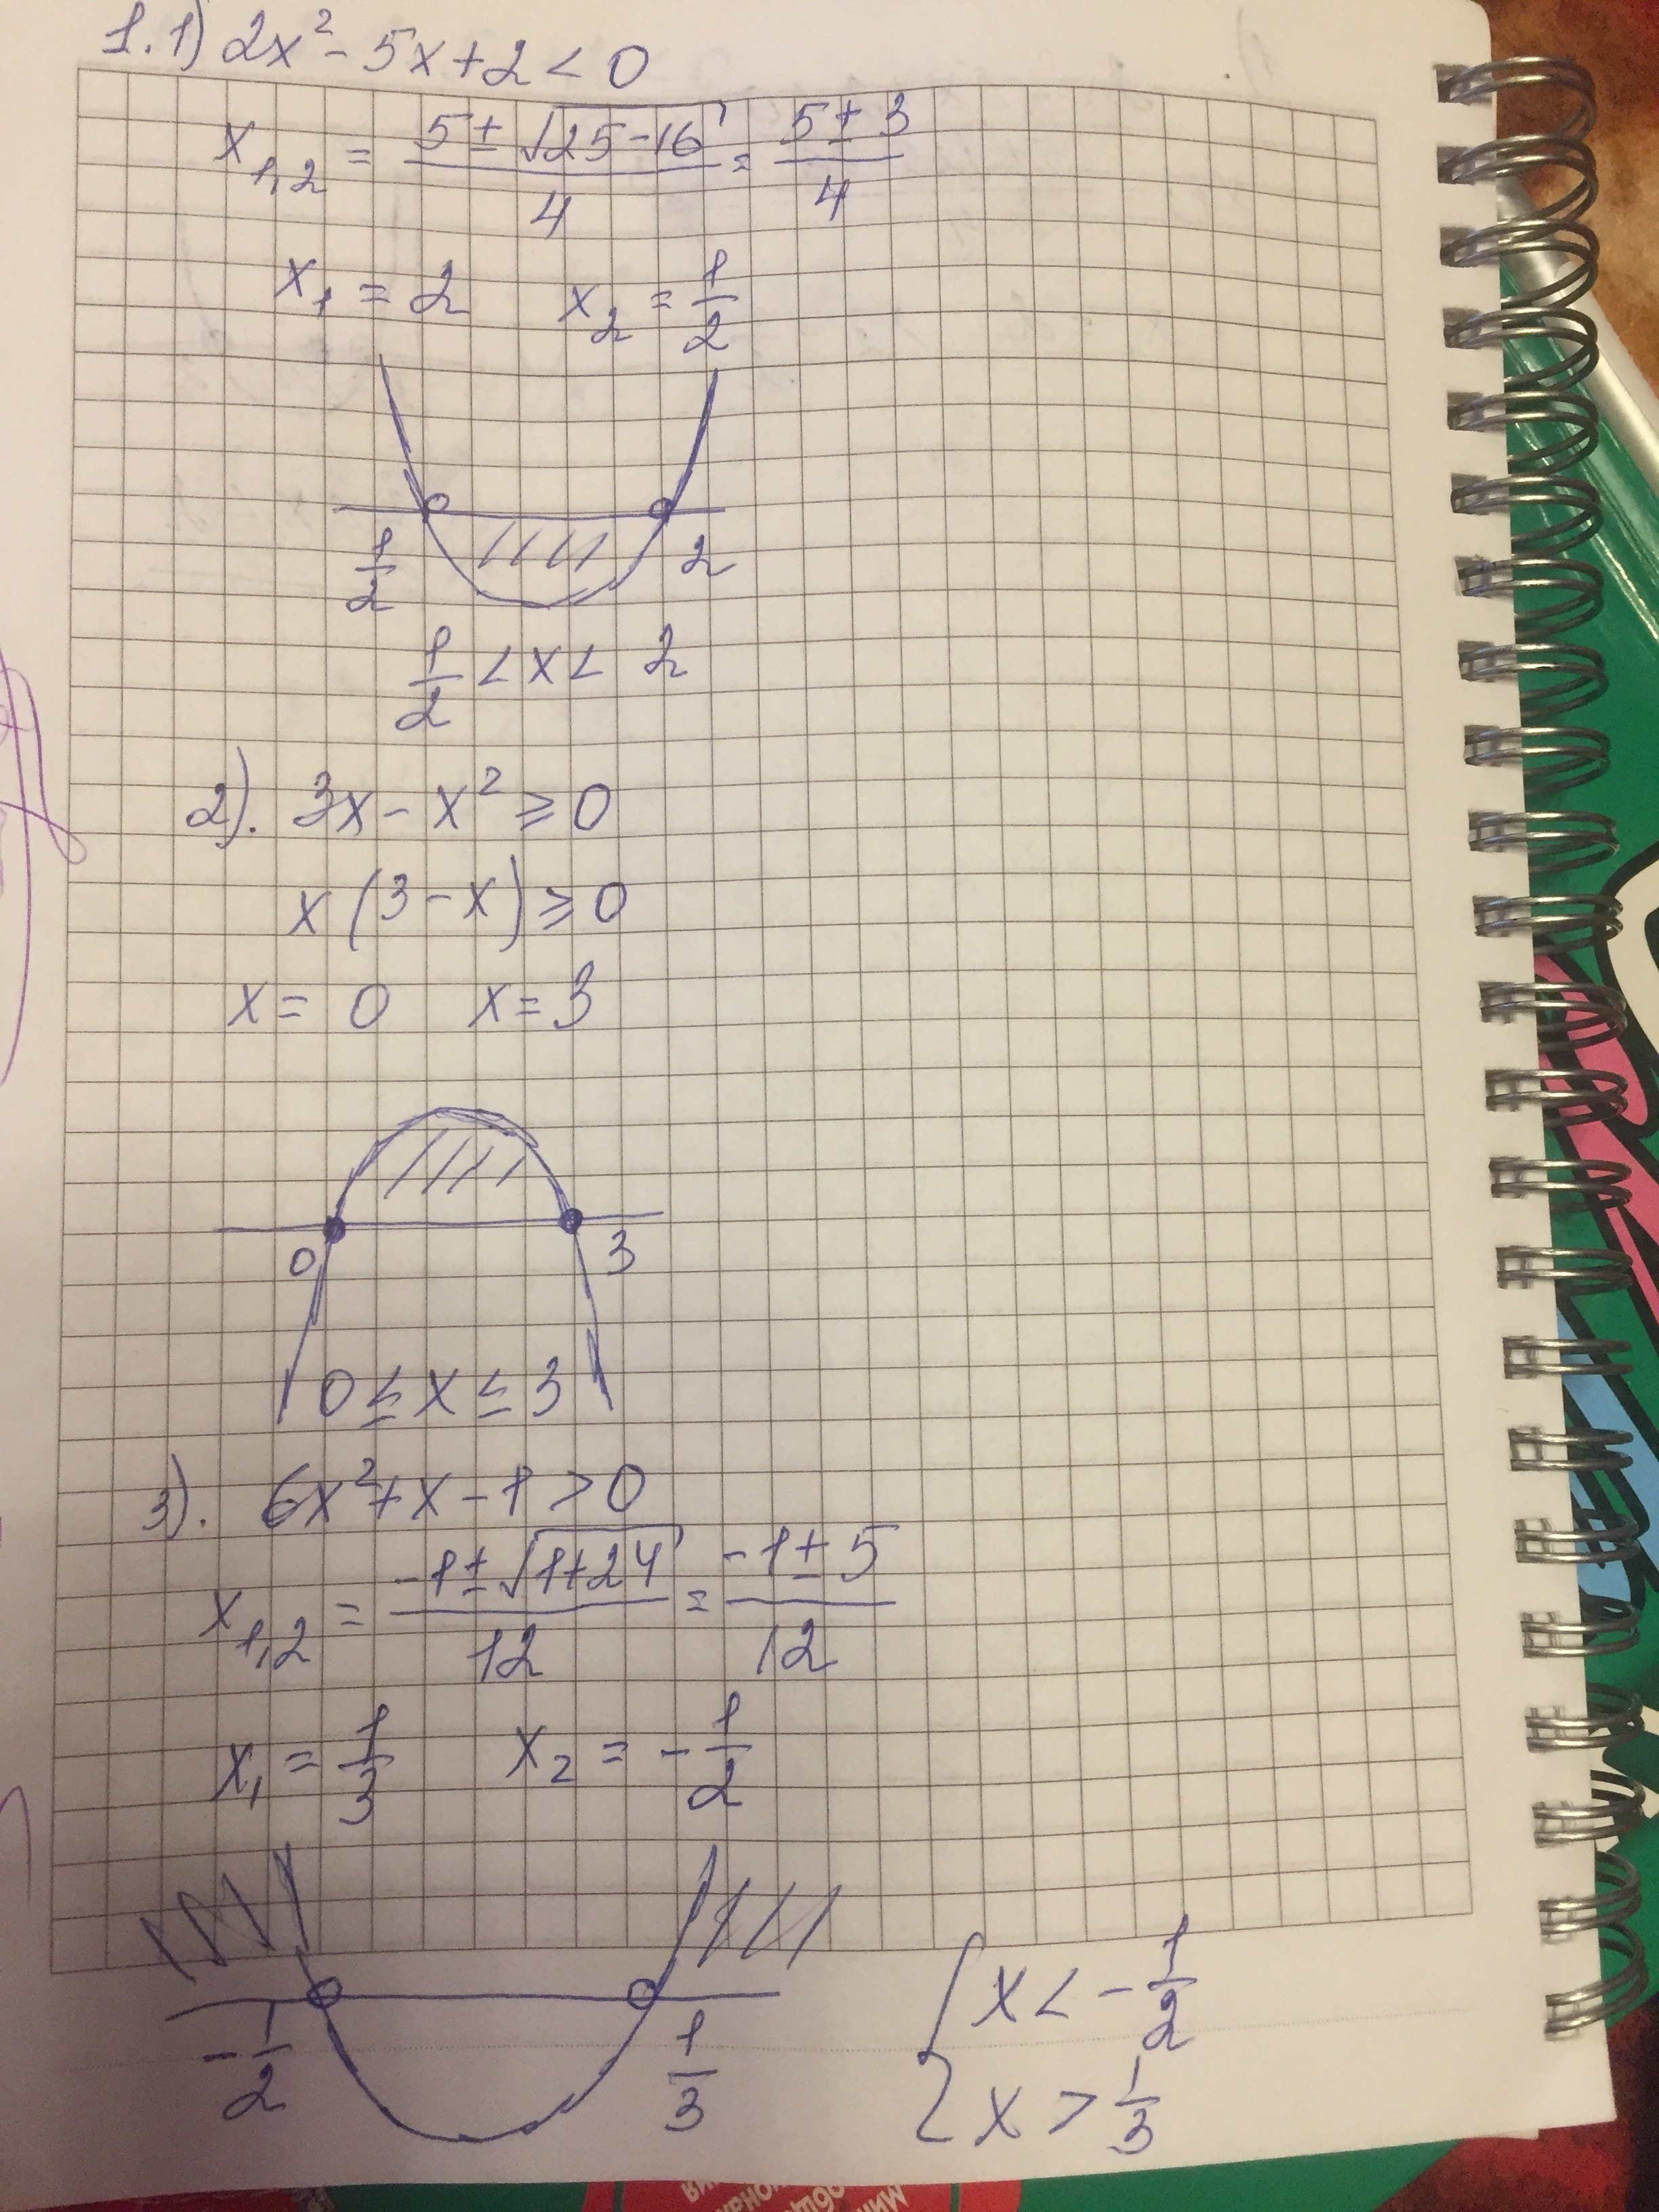 1. 1) 2x² - 5x + 2 < 0
x₁,₂ = (5 ± √(25-16))/4 = (5 ± 3)/4
x₁ = 2 x₂ = 1/2
1/2 2
1/2 < x < 2
2). 3x - x² ⩾ 0
x (3 - x) ⩾ 0
x = 0 x = 3
0 3
0 ≤ x ≤ 3
3). 6x² + x - 1 > 0
x₁,₂ = (-1 ± √(1+24))/12 = (-1 ± 5)/12
x₁ = 1/3 x₂ = -1/2
-1/2 1/3
{ x < -1/2
x > 1/3